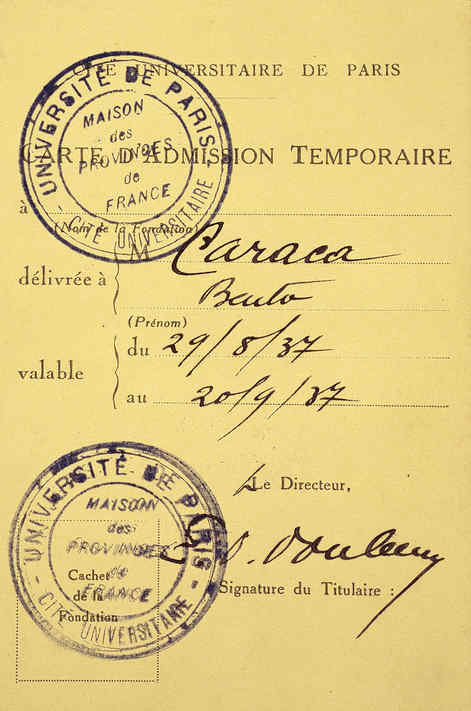 CITÉ UNIVERSITAIRE DE PARIS
CARTE D'ADMISSION TEMPORAIRE
à
(Nom de la Fondation)
UNIVERSITÉ DE PARIS
MAISON
des
PROVINCES
de
FRANCE
CITÉ UNIVERSITAIRE
délivrée à
M Caraca
Bento
(Prénom)
valable
du 29/8/37
au 20/9/37
Le Directeur,
Signature du Titulaire :
UNIVERSITÉ DE PARIS
MAISON
des
PROVINCES
de
FRANCE
CITÉ UNIVERSITAIRE
Cachet
de la
Fondation